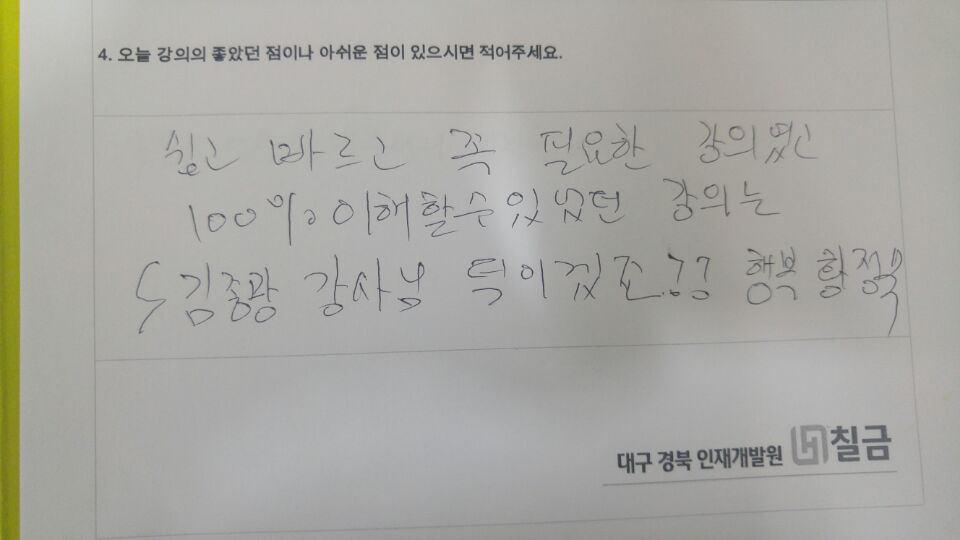 4. 오늘 강의의 좋았던 점이나 아쉬운 점이 있으시면 적어주세요.
쉽고 빠르고 꼭 필요한 강의였고
100% 이해할수있었던 강의는
김종광 강사님 덕이겠죠.?? 행복
대구 경북 인재개발원 칠금